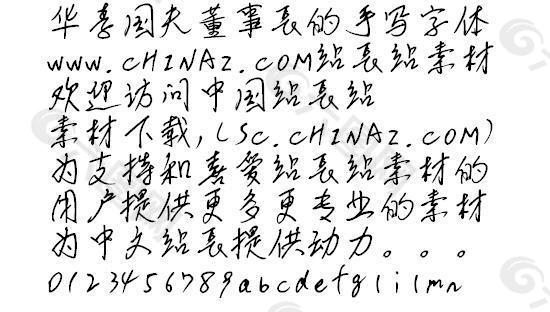 华喜国夫董事长的手写字体
www.CHINAZ.COM站长站素材
欢迎访问中国站长站
素材下载,(SC.CHINAZ.COM)
为支持和喜爱站长站素材的
用户提供更多更专业的素材
为中文站长提供动力。。。
0123456789abcdefgijilmn